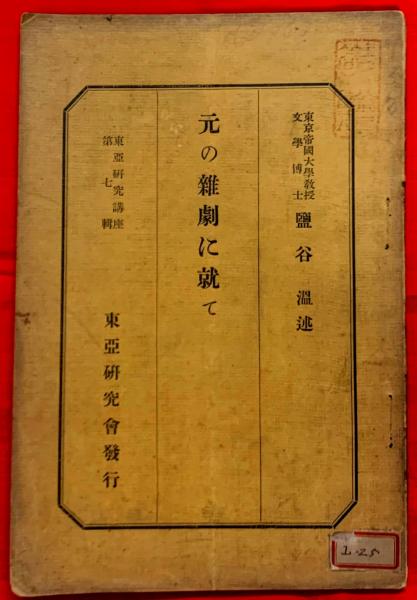 東京帝國大學教授
文學博士
鹽谷溫述
元の雜劇に就て
東亞研究講座
第七輯
東亞研究會發行
L-25